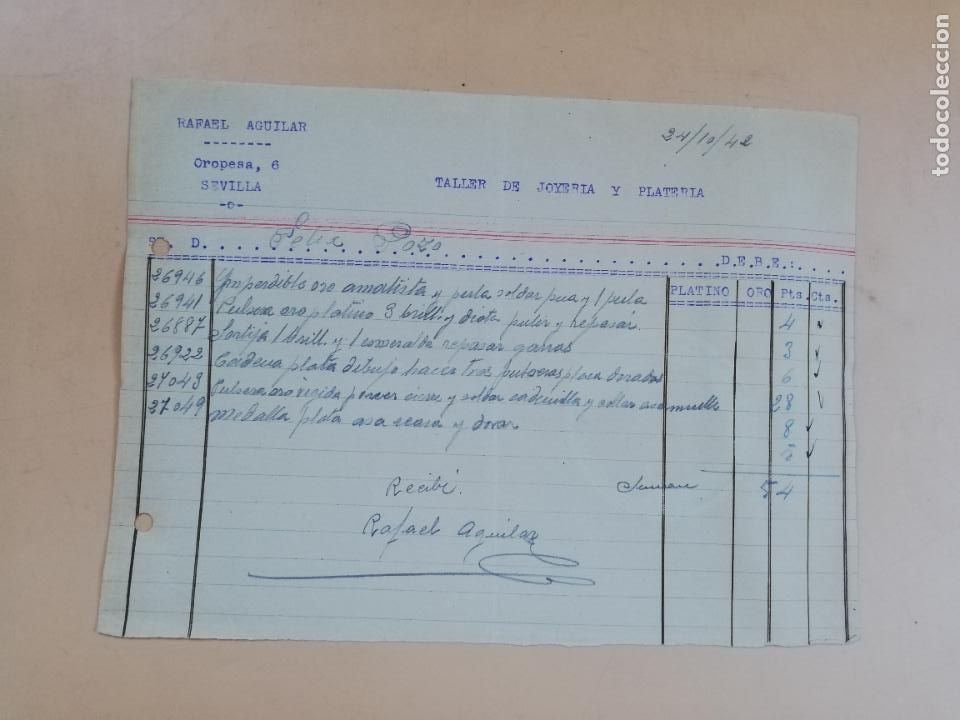 RAFAEL AGUILAR
--------
Oropesa, 6
SEVILLA
-o-
24/10/42
TALLER DE JOYERIA Y PLATERIA
D. Felix Pozo
D.E.B.E.:
PLATINO ORO Pts. Cts.
26946 Imperdible oro amatista y perla soldar pua y 1 perla 4
26941 Pulsera oro platino 3 brill. y pulir y repasar 3
26887 Sortija 1 brill. y 1 esmeralda repasar garras 6
26922 Cadena plata dibujo hacer tres pulseras placa doradas 28
27043 Pulsera oro rigida poner cierre y soldar cadenilla y soldar asa muelle 8
27049 Medalla plata asa reasa y dorar 5
Recibi. Suman 54
Rafael Aguilar
todocoleccion